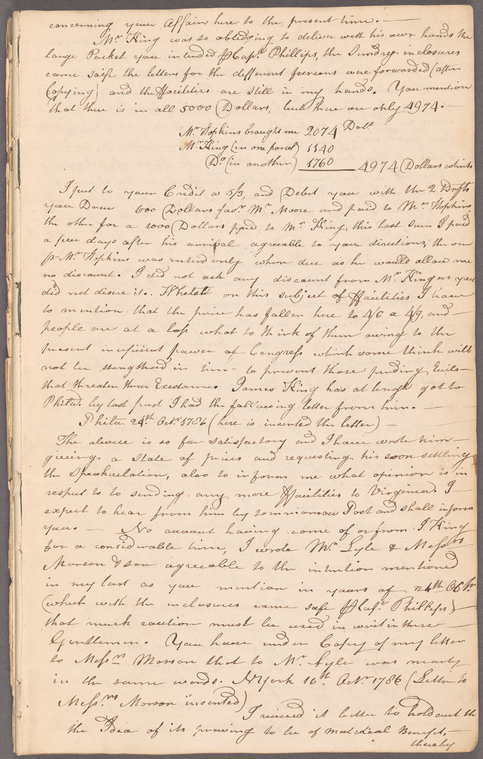 concerning your Affairs here to the present time. —
Mr. King was so obliging to deliver with his own hands the
large Packet you intended Capt. Phillips, the Sundry inclosures
came safe the letters for the different persons were forwarded (after
Copying) and the Facilities are still in my hands. You mention
that there is in all 5000 Dollars, but there are only 4974. —
Mr. Hopkins brought me 2074 Dolls
Mr. King (in one parcel) 1140
Do. (in another) 1760 4974 Dollars which
I put to your Credit @ 5/3, and Debit you with the 2 Drafts
you Drew 600 Dollars favr. Mr. Moore and paid to Mr. Hopkins
the other for a 1000 Dollars paid to Mr. King, this last Sum I paid
a few days after his arrival agreeable to your directions, the one
p. Mr. Hopkins was only when due as he would allow me
no discount. I did not ask any discount from Mr. King as you
did not desire it. Whilst on this subject of Facilities I have
to mention that the price has fallen here to 4/6 a 4/9, and
people are at a loss what to think of them owing to the
present inefficient power of Congress which some think will
not be strengthened in time to prevent those evils
that threaten their Existance. James King has at length got to
Philad. by last post I had the following letter from him. —
Philad. 24th. Octr. 1786 (here is inserted the letter) —
The above is so far satisfactory and I have wrote him
giving a State of prices and requesting his soon settling
the Speculation, also to inform me what opinion is in
respect to to sending any more Facilities to Virginia. I
expect to hear from him by tomorrow Post and shall inform
you. No account having come of or from J King
for a considerable time, I wrote Mr. Lyle & Messrs
Morson & Son agreeable to the intention mentioned
in my last as you mention in yours of 4th Octr.
(which with the inclosures came safe Capt. Phillips)
that much caution must be used in writing these
Gentlemen. You have under Copy of my letter
to Messrs. Morson that to Mr. Lyle was nearly
in the same words. NYork 16th. Octr. 1786 (Letter to
Messrs. Morson inserted)
I a letter to hold out the
the Idea of its proving to be of material Benefit, —
thereby